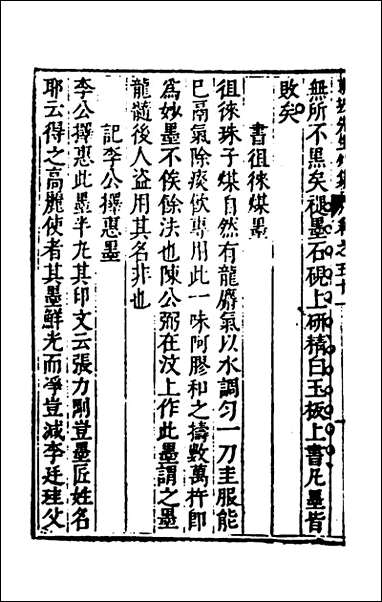 東坡先生外集 卷之五十一
無所不黑矣褪墨石硯上研精白玉板上書凡墨皆
敗矣
書徂徠煤墨
徂徠珠子煤自然有龍麝氣以水調勻一刀圭服能
巳鬲氣除痰飲專用此一味阿膠和之擣數萬杵即
為妙墨不俟餘法也陳公弼在汶上作此墨謂之墨
龍髓後人盗用其名非也
記李公擇惠墨
李公擇惠此墨半丸其印文云張力剛豈墨匠姓名
耶云得之高麗使者其墨鮮光而凈豈減李廷珪父